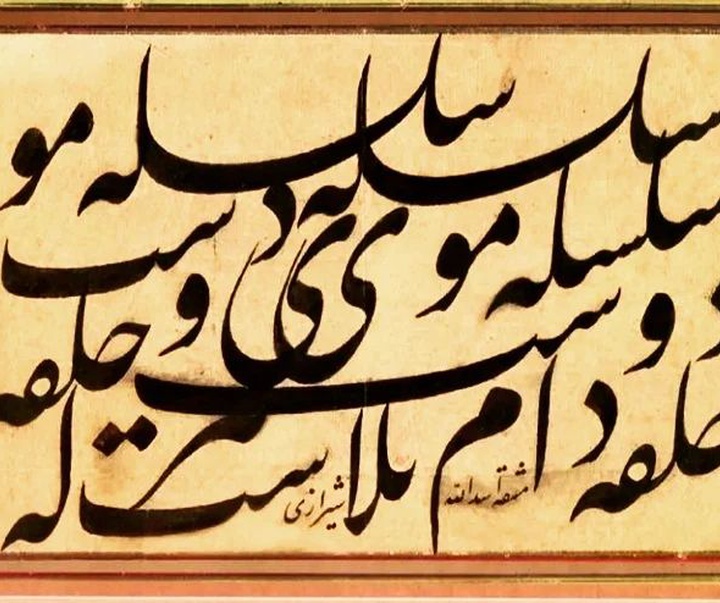 سلسله سلسله مو
سلسله موی ی دوست
دوست حلقه
حلقه دام بلاست له
مشقه اسدالله شیرازی